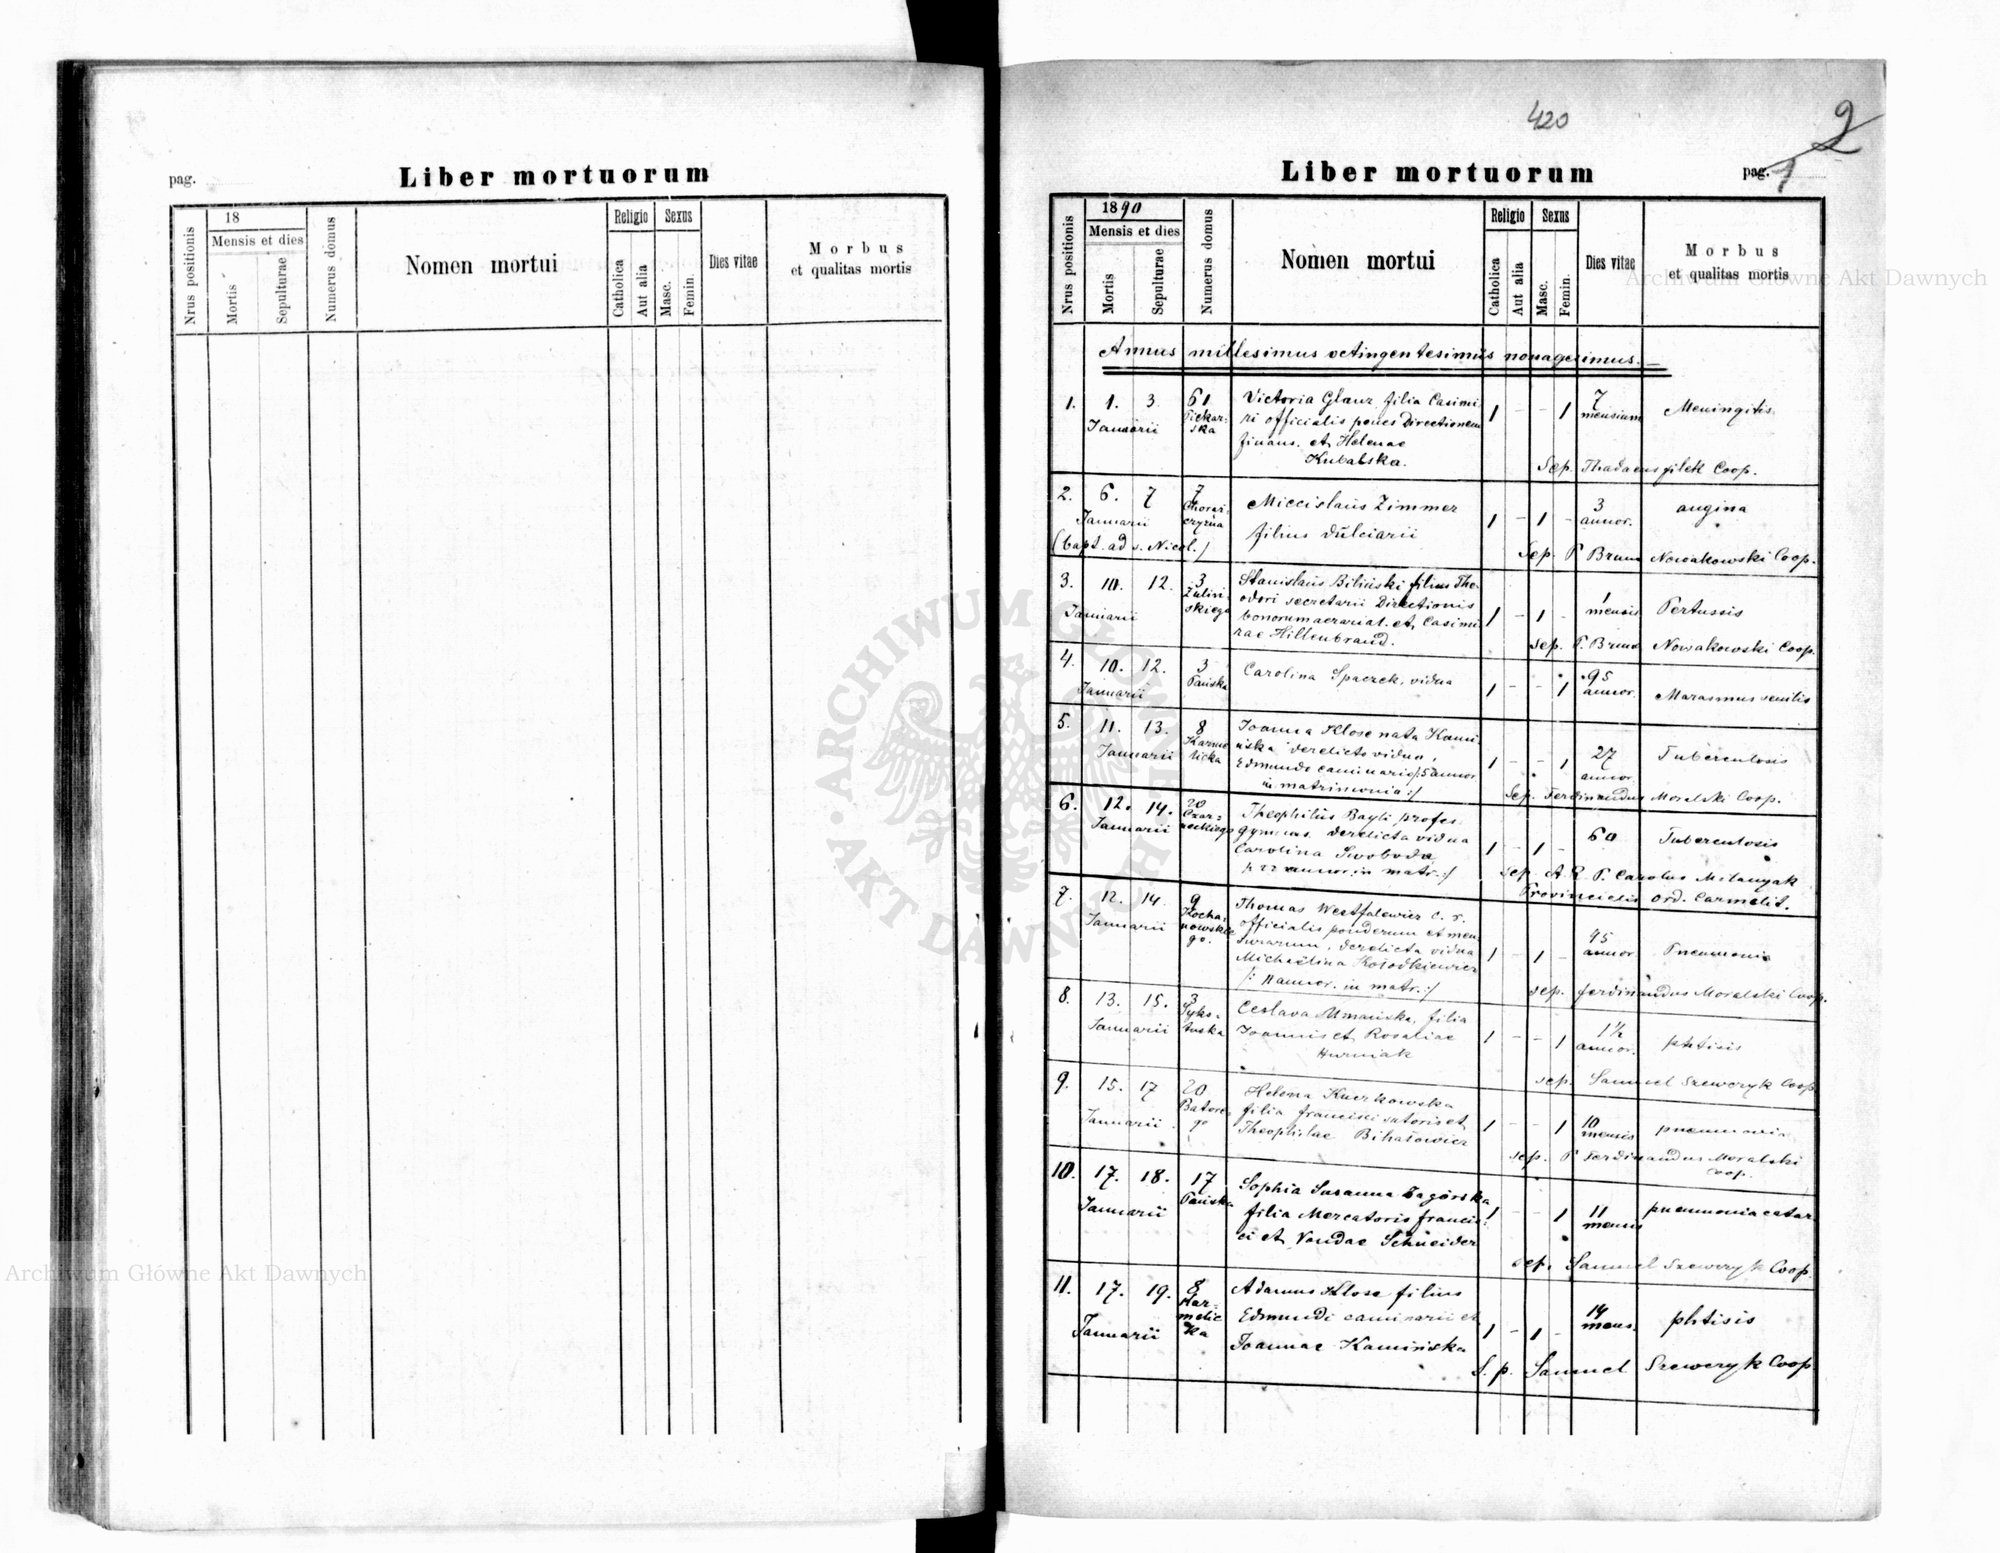 pag.
Liber mortuorum
Nrus positionis
18
Mensis et dies
Mortis
Sepulturae
Numerus domus
Nomen mortui
Religio
Catholica
Aut alia
Sexus
Masc.
Femin.
Dies vitae
Morbus
et qualitas mortis
420
2
Liber mortuorum
pag. 1
Nrus positionis
1890
Mensis et dies
Mortis
Sepulturae
Numerus domus
Nomen mortui
Religio
Catholica
Aut alia
Sexus
Masc.
Femin.
Dies vitae
Morbus
et qualitas mortis
Annus millesimus octingentesimus nonagesimus.
1. 1. 3. 61 Victoria Glanz filia Casimi- 1 - - 1 7 Meningitis
Januarii Piekar- ri officialis penes Directionem mensium
ska finans. et Helenae
Kubalska.
Sep. Thadaeus filek Coop.
2. 6. 7 7 Miecislaus Zimmer 1 - 1 - 3 angina
Januarii Chorąż- filius dulciarii annor.
czyzna
(bapt. ad s. Nicol.)
Sep. P Bruno Nowakowski Coop.
3. 10. 12. 3 Stanislaus Biliński filius The- 1 - 1 - 1 Pertussis
Januarii Zulin- odori secretarii Directionis mensis
skiego bonorum aerarial. et Casimi-
rae Hillenbrand.
Sep. P. Bruno Nowakowski Coop.
4. 10. 12. 3 Carolina Spaczek, vidua 1 - - 1 95 Marasmus senilis
Januarii Pańska annor.
5. 11. 13. 8 Joanna Klose nata Kami- 1 - - 1 27 Tuberculosis
Januarii Karme- ńska derelicto viduo, annor.
licka Edmundo caminario /: 5 annor.
in matrimonia :/
Sep. Ferdinandus Moralski Coop.
6. 12. 14. 20 Theophilus Bayli profes. 1 - 1 - 60 Tuberculosis
Januarii Czar- gymnas. derelicta vidua
neckiego Carolina Swoboda
/: 22 annor. in matr. :/
Sep. A. R. P. Carolus
Provincialis ord. Carmelit.
7. 12. 14. 9 Thomas Westfalewicz c. r. 1 - 1 - 45 Pneumonia
Januarii Kocha- officialis ponderum et men- annor.
nowskie- surarum, derelicta vidua
go. Michaëlina Kołodkiewicz
/: annor. in matr. :/
sep. ferdinandus Moralski Coop.
8. 13. 15. 3 Ceslava filia 1 - - 1 1½ phtisis
Januarii Syks- Joannis et Rosaliae annor.
tuska Hurniak
sep. Samuel Szewczyk Coop
9. 15. 17 20 Helena Kuczkowska 1 - - 1 10 pneumonia
Januarii. Batore- filia francisci sutoris et mensis
go Theophilae
sep. P Ferdinandus Moralski
Coop.
10. 17. 18. 17 Sophia Susanna Zagórska 1 - - 1 11 pneumonia catar.
Januarii Pańska filia Mercatoris francis- mensis
ci et Vandae Schneider
sep. Samuel Szewczyk Coop.
11. 17. 19. 8 Adamus Klose filius 1 - 1 - 14 phtisis
Januarii Kar- Edmundi caminarii et mens.
melic- Joannae Kamińska
ka
S. p. Samuel Szewczyk Coop
Archiwum Główne Akt Dawnych
Archiwum Główne Akt Dawnych
ARCHIWUM GŁÓWNE AKT DAWNYCH